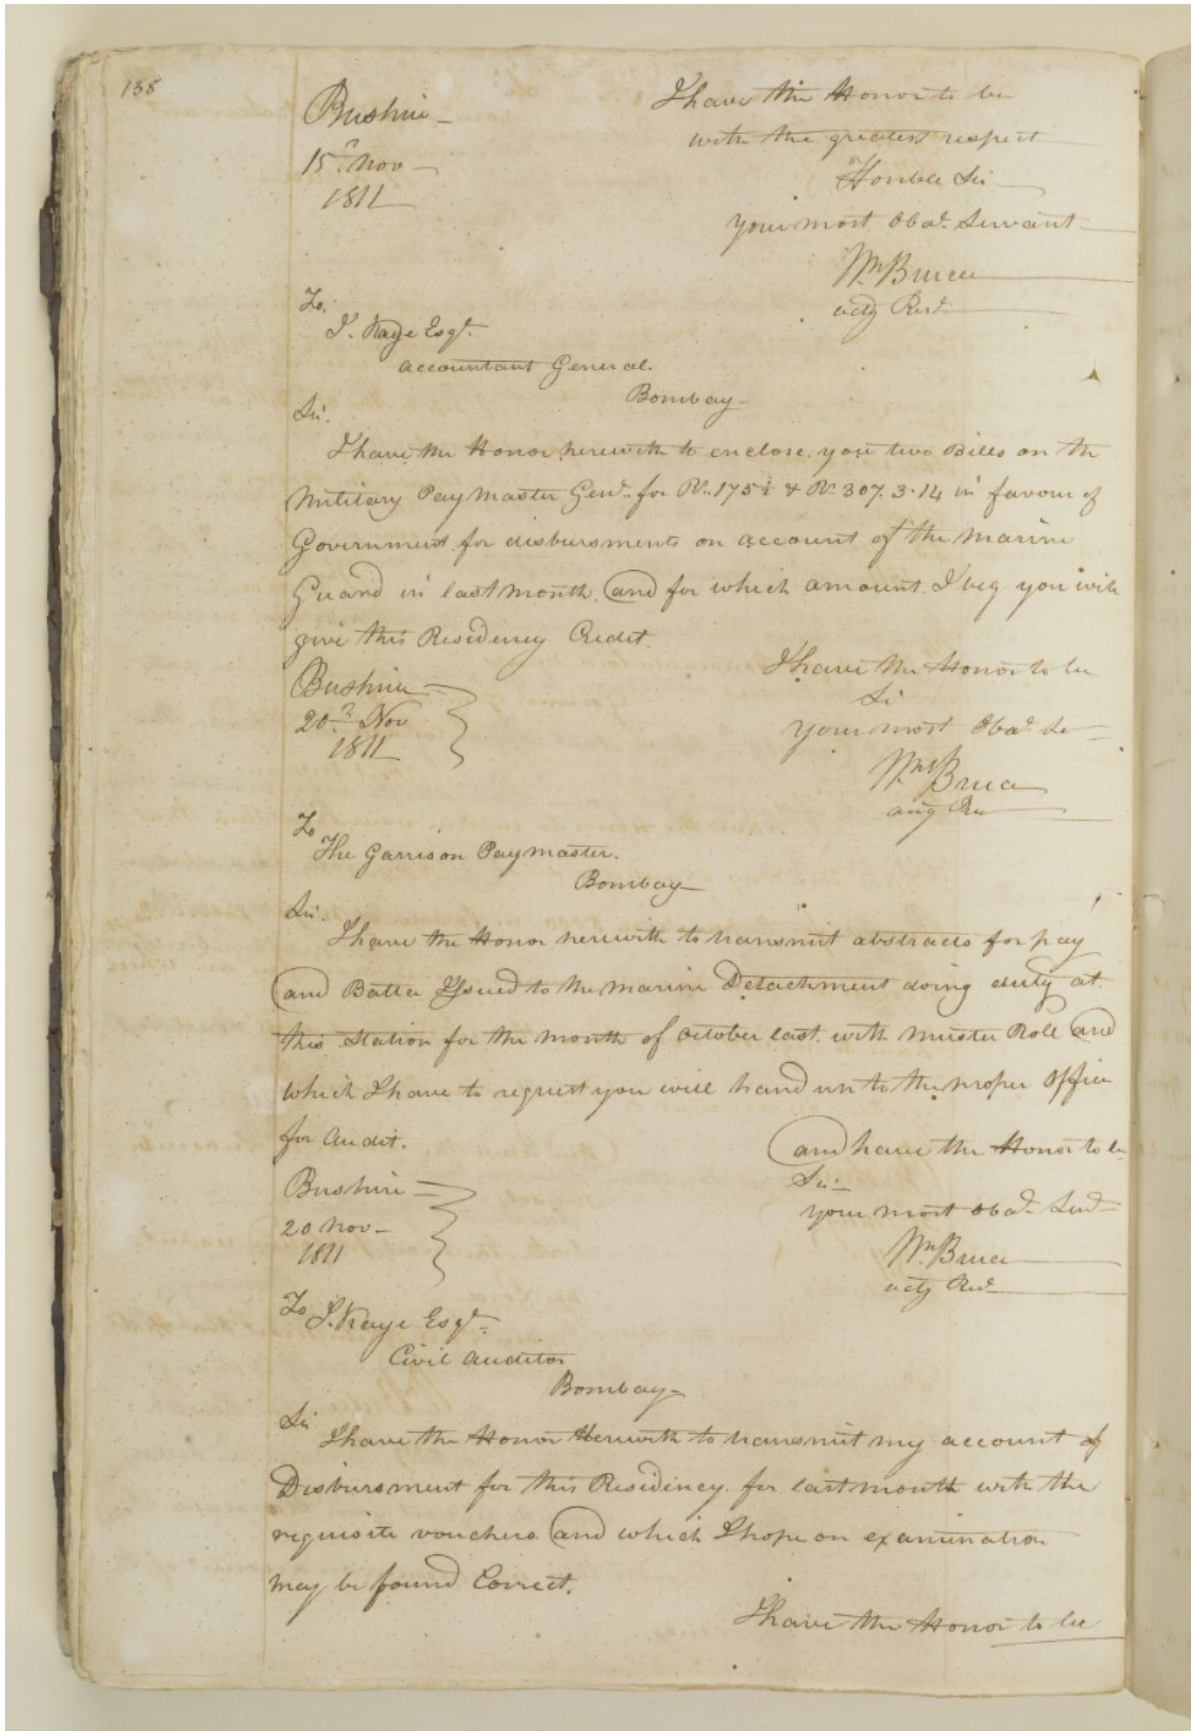 138
Bushire
I have the Honor to be
with the greatest respect
15th Nov
Honble Sir
1811
your most Obdt. Servant
Wm Bruce
actg Resdt
To.
J. Kaye Esqr.
Accountant General.
Bombay
Sir.
I have the Honor herewith to enclose you two Bills on the
Military Pay Master Genl. for Rs. 175½ & Rs. 307. 3. 14 in favour of
Government for disbursments on account of the Marine
Guard in last month, and for which amount I beg you will
give this Residency Credit.
I have the Honor to be
Bushire
Sir
20th Nov
your most Obdt Se
1811
Wm Bruce
actg Re
To
The Garrison Paymaster.
Bombay
Sir.
I have the Honor herewith to transmit abstracts for pay
and Batta Issued to the Marine Detachment doing duty at
this Station for the month of October last with Muster Role and
which I have to request you will hand un to the proper Office
for Audit.
and have the Honor to be
Bushire
Sir
your most Obdt. Servt
20 Nov
1811
Wm Bruce
actg Resdt
To J. Kaye Esqr.
Civil Auditor
Bombay
Sir
I have the Honor Herewith to transmit my account of
Disbursment for this Residency for last month with the
requisite vouchers and which I hope on examination
may be found Correct.
I have the Honor to be